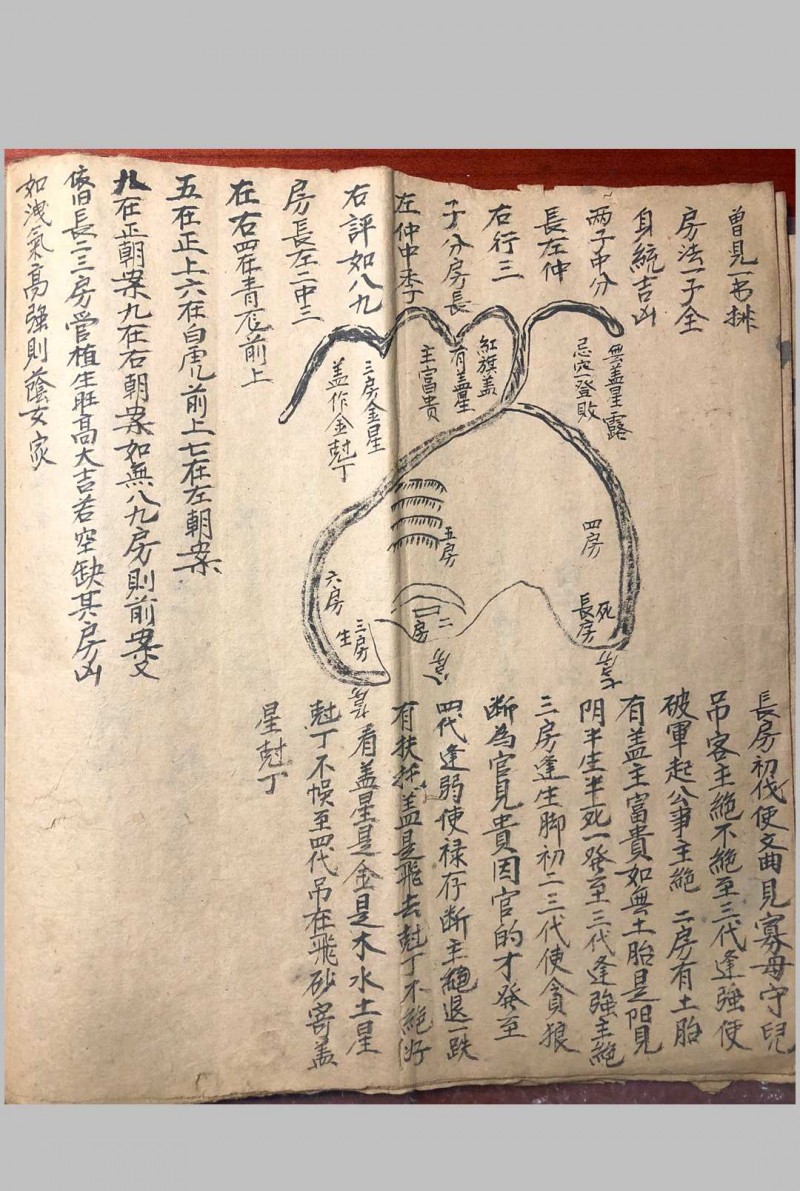 曽見一书排
房法一子全
身統吉凶
两子中分
長左仲
右行三
子分房長
左仲中季丁
右評如八九
房長左二中三
在右四在青龙前上
五在正上六在白虎前上七在左朝案
八在正朝案九在右朝案如無八九房則前案又
依旧長二三房管植生旺高大吉若空缺其房凶
如洩氣高強則蔭女家
無盖星露
忌灾一登敗
紅旗盖
有盖星
主富貴
三房金星
盖作金尅丁
四房
五房
六房
死
長房
二房
三房
生
長房初伐使文曲見寡母守兒
吊客主絕不絕至三代逢強使
破軍起公事主絕 二房有土胎
有盖主富貴如無土胎是阳見
阴半生半死一發至三代逢強主絕
三房逢生脚初二三代使貪狼
断為官見貴因官的才發至
四代逢弱使禄存断主絕退一跌
有扶托盖是飛去尅丁不絕好
看盖星是金是木水土星
尅丁不悞至四代吊在飛砂寄盖
星尅丁